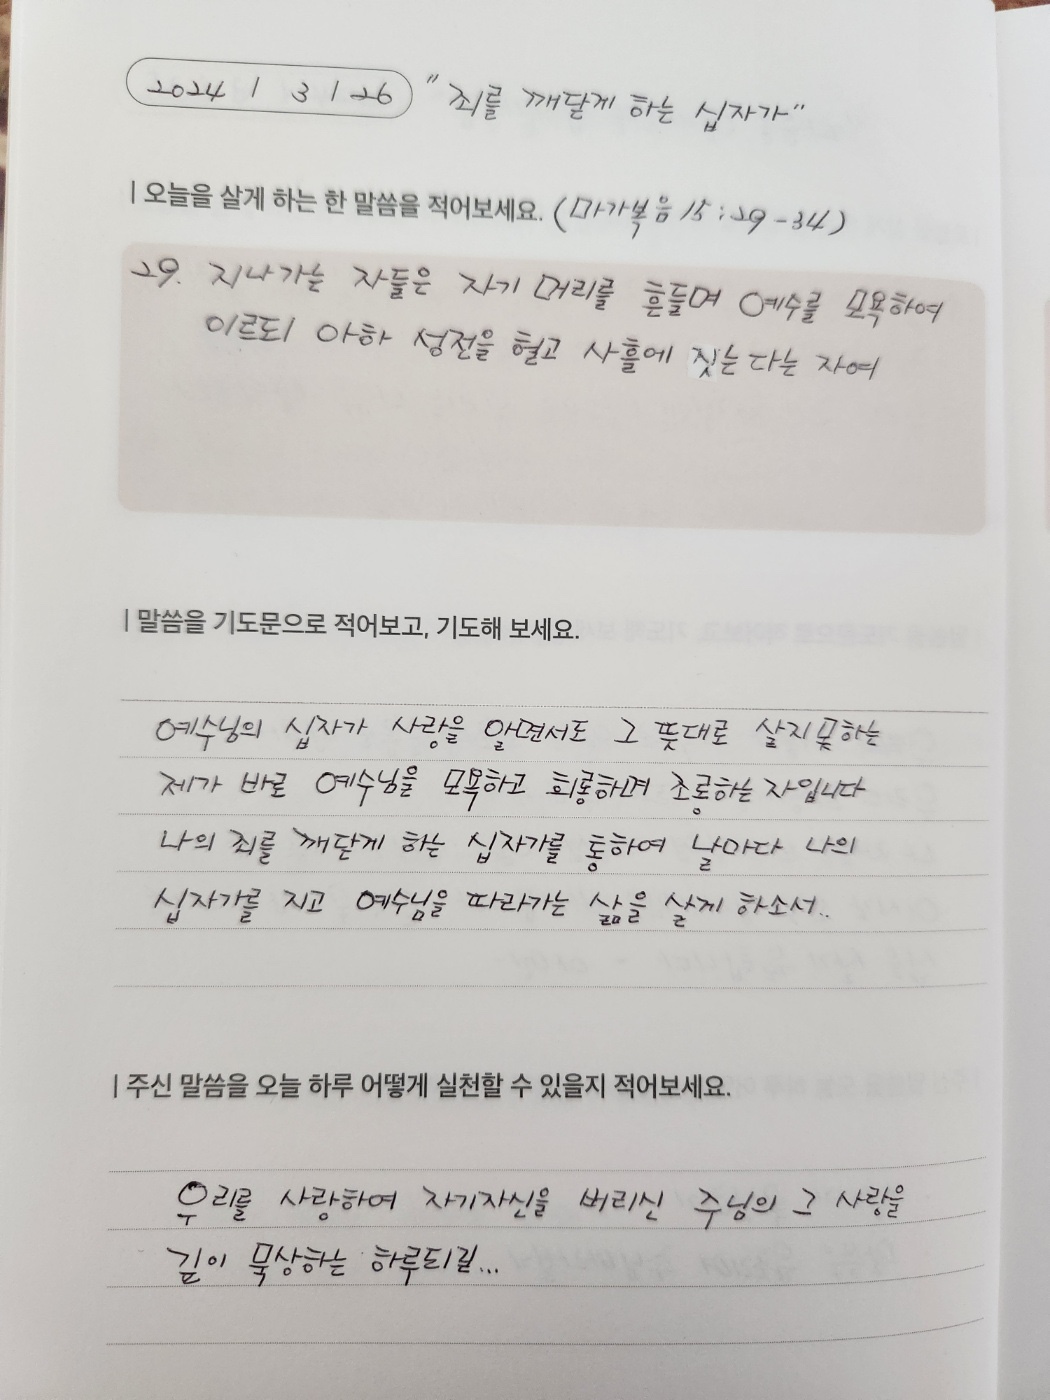 2024 / 3 / 26 "죄를 깨닫게 하는 십자가"
| 오늘을 살게 하는 한 말씀을 적어보세요. (마가복음 15:29-34)
29. 지나가는 자들은 자기 머리를 흔들며 예수를 모욕하여
이르되 아하 성전을 헐고 사흘에 짓는다는 자여
| 말씀을 기도문으로 적어보고, 기도해 보세요.
예수님의 십자가 사랑을 알면서도 그 뜻대로 살지못하는
제가 바로 예수님을 모욕하고 희롱하며 조롱하는 자입니다
나의 죄를 깨닫게 하는 십자가를 통하여 날마다 나의
십자가를 지고 예수님을 따라가는 삶을 살게 하소서..
| 주신 말씀을 오늘 하루 어떻게 실천할 수 있을지 적어보세요.
우리를 사랑하여 자기자신을 버리신 주님의 그 사랑을
깊이 묵상하는 하루되길...